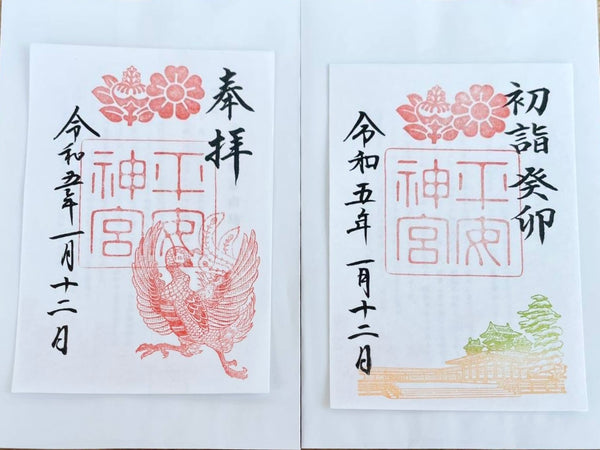 奉拝
平安
神宮
令和五年一月十二日
初詣癸卯
平安
神宮
令和五年一月十二日